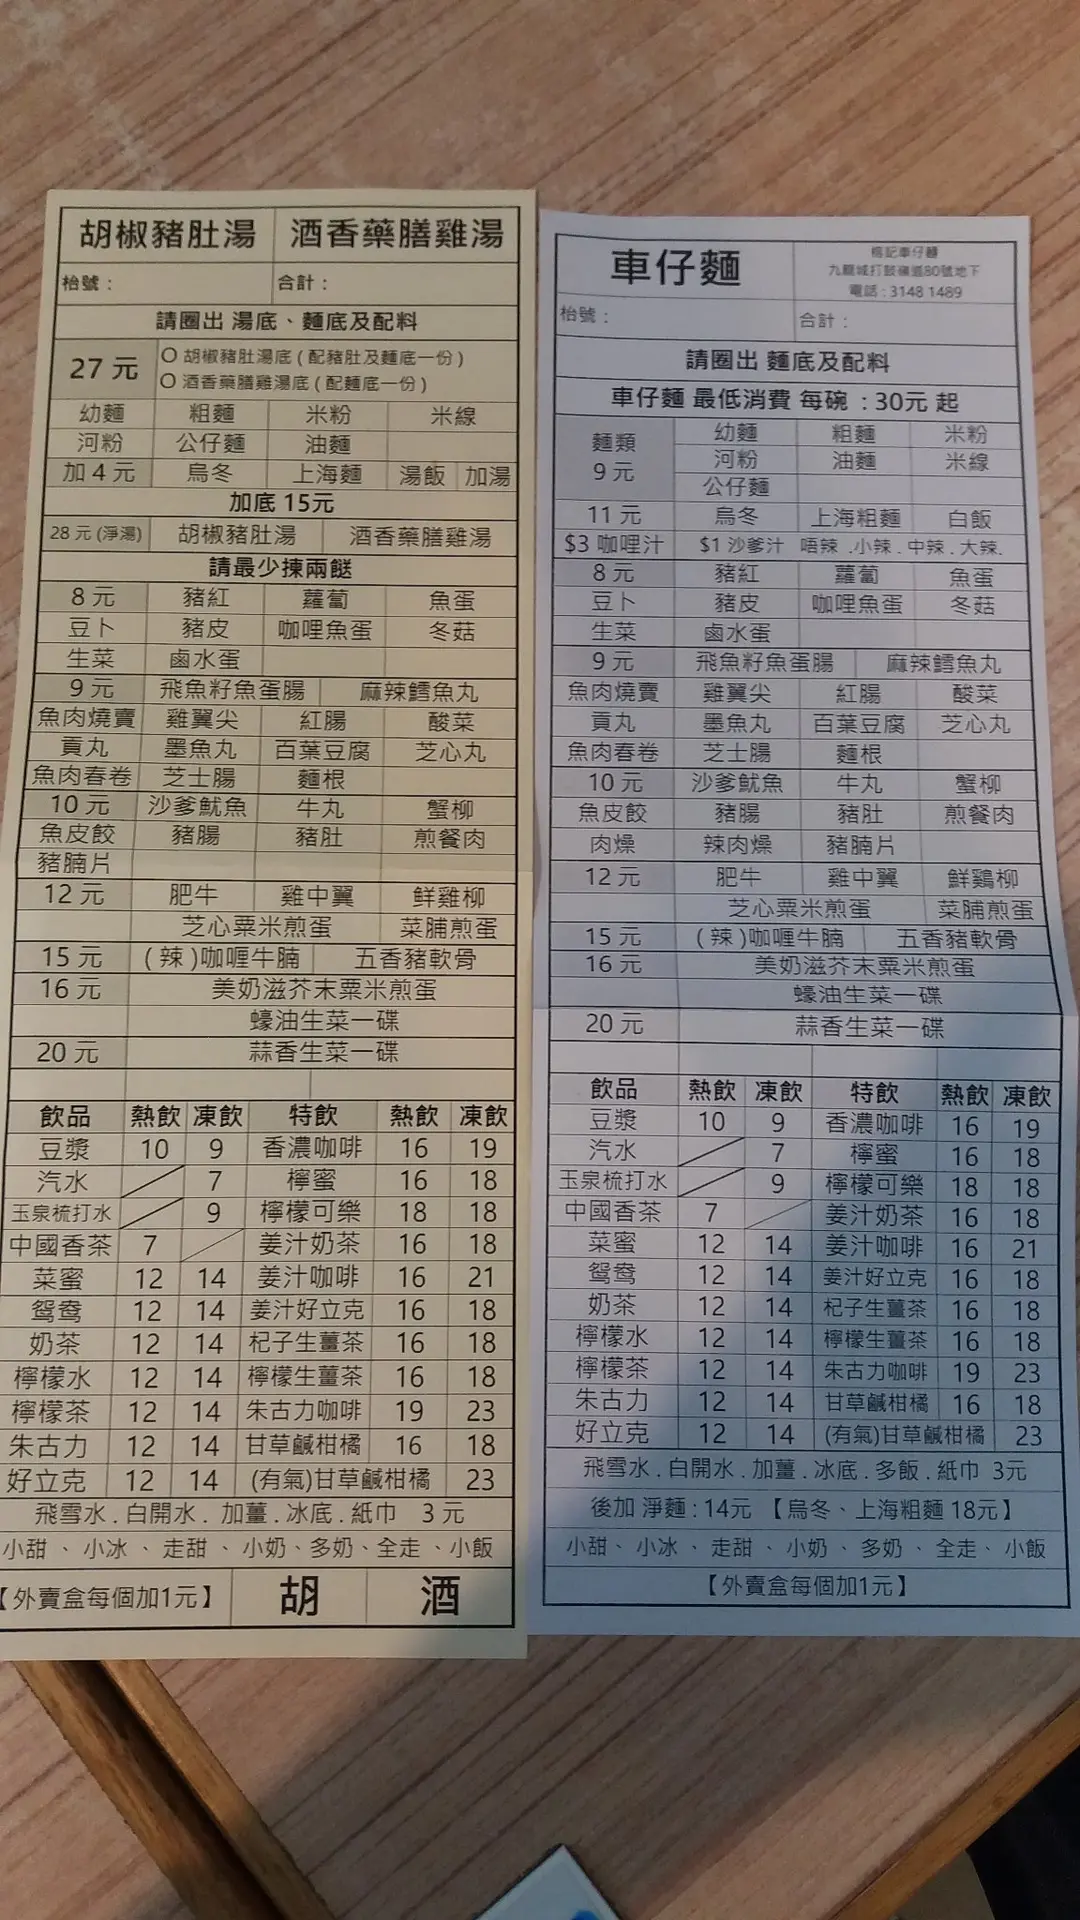 胡椒豬肚湯 酒香藥膳雞湯
枱號： 合計：
請圈出 湯底、麵底及配料
27 元 O 胡椒豬肚湯底 ( 配豬肚及麵底一份 )
O 酒香藥膳雞湯底 ( 配麵底一份 )
幼麵 粗麵 米粉 米線
河粉 公仔麵 油麵
加 4 元 烏冬 上海麵 湯飯 加湯
加底 15元
28 元 (淨湯) 胡椒豬肚湯 酒香藥膳雞湯
請最少揀兩餸
8 元 豬紅 蘿蔔 魚蛋
豆卜 豬皮 咖哩魚蛋 冬菇
生菜 鹵水蛋
9 元 飛魚籽魚蛋腸 麻辣鱈魚丸
魚肉燒賣 雞翼尖 紅腸 酸菜
貢丸 墨魚丸 百葉豆腐 芝心丸
魚肉春卷 芝士腸 麵根
10 元 沙爹魷魚 牛丸 蟹柳
魚皮餃 豬腸 豬肚 煎餐肉
豬腩片
12 元 肥牛 雞中翼 鮮雞柳
芝心粟米煎蛋 菜脯煎蛋
15 元 ( 辣 )咖喱牛腩 五香豬軟骨
16 元 美奶滋芥末粟米煎蛋
蠔油生菜一碟
20 元 蒜香生菜一碟
飲品 熱飲 凍飲 特飲 熱飲 凍飲
豆漿 10 9 香濃咖啡 16 19
汽水 7 檸蜜 16 18
玉泉梳打水 9 檸檬可樂 18 18
中國香茶 7 姜汁奶茶 16 18
菜蜜 12 14 姜汁咖啡 16 21
鴛鴦 12 14 姜汁好立克 16 18
奶茶 12 14 杞子生薑茶 16 18
檸檬水 12 14 檸檬生薑茶 16 18
檸檬茶 12 14 朱古力咖啡 19 23
朱古力 12 14 甘草鹹柑橘 16 18
好立克 12 14 (有氣)甘草鹹柑橘 23
飛雪水 . 白開水 . 加薑 . 冰底 . 紙巾 3 元
小甜 、 小冰 、 走甜 、 小奶、多奶、全走 、小飯
【外賣盒每個加1元】 胡 酒
車仔麵
車仔麵
九龍城打鼓嶺道80號地下
電話 : 3148 1489
枱號： 合計：
請圈出 麵底及配料
車仔麵 最低消費 每碗 : 30元 起
麵類 9 元 幼麵 粗麵 米粉
河粉 油麵 米線
公仔麵
11 元 烏冬 上海粗麵 白飯
$3 咖哩汁 $1 沙爹汁 唔辣 .小辣 . 中辣 . 大辣.
8 元 豬紅 蘿蔔 魚蛋
豆卜 豬皮 咖哩魚蛋 冬菇
生菜 鹵水蛋
9 元 飛魚籽魚蛋腸 麻辣鱈魚丸
魚肉燒賣 雞翼尖 紅腸 酸菜
貢丸 墨魚丸 百葉豆腐 芝心丸
魚肉春卷 芝士腸 麵根
10 元 沙爹魷魚 牛丸 蟹柳
魚皮餃 豬腸 豬肚 煎餐肉
肉燥 辣肉燥 豬腩片
12 元 肥牛 雞中翼 鮮鷄柳
芝心粟米煎蛋 菜脯煎蛋
15 元 ( 辣 )咖喱牛腩 五香豬軟骨
16 元 美奶滋芥末粟米煎蛋
蠔油生菜一碟
20 元 蒜香生菜一碟
飲品 熱飲 凍飲 特飲 熱飲 凍飲
豆漿 10 9 香濃咖啡 16 19
汽水 7 檸蜜 16 18
玉泉梳打水 9 檸檬可樂 18 18
中國香茶 7 姜汁奶茶 16 18
菜蜜 12 14 姜汁咖啡 16 21
鴛鴦 12 14 姜汁好立克 16 18
奶茶 12 14 杞子生薑茶 16 18
檸檬水 12 14 檸檬生薑茶 16 18
檸檬茶 12 14 朱古力咖啡 19 23
朱古力 12 14 甘草鹹柑橘 16 18
好立克 12 14 (有氣)甘草鹹柑橘 23
飛雪水 . 白開水 . 加薑 . 冰底 . 多飯 . 紙巾 3元
後加 淨麵 : 14元 【烏冬、上海粗麵 18元】
小甜 、 小冰 、 走甜 、 小奶 、 多奶 、 全走 、 小飯
【外賣盒每個加1元】